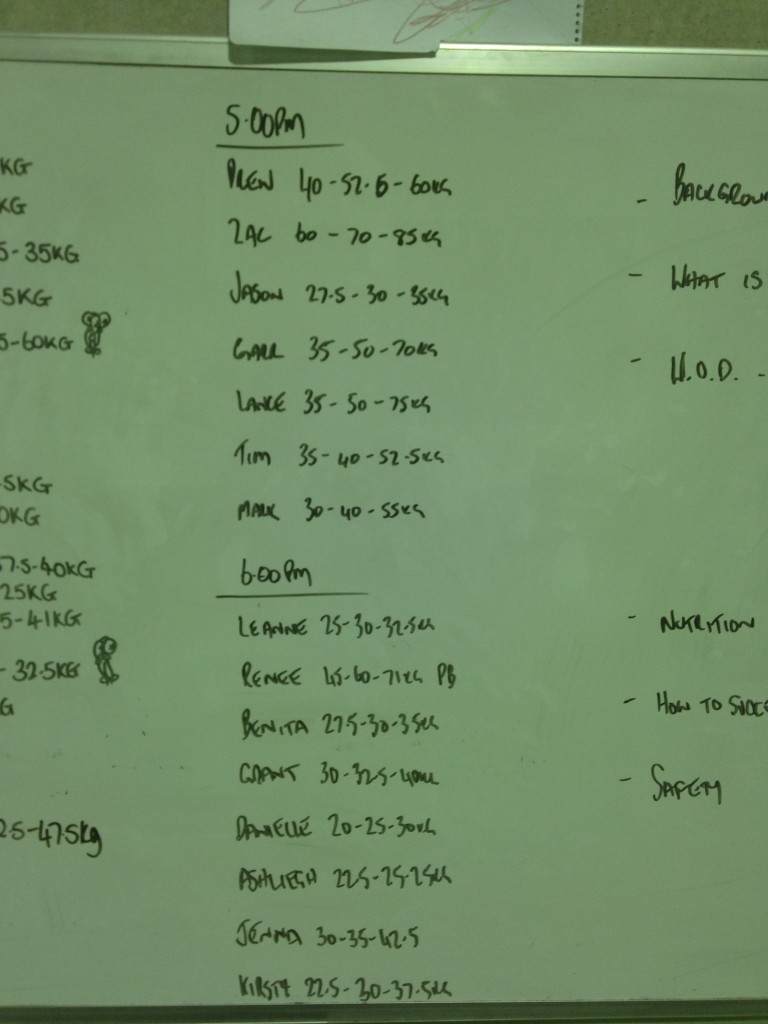 KG
KG
5-35KG
5KG
5-60KG
5KG
0KG
7.5-40KG
25KG
5-41KG
- 32.5KG
G
2.5-47.5kg
5.00PM
40-52.5-60KG
ZAC 60-70-85KG
JASON 27.5-30-35KG
35-50-70KG
LANCE 35-50-75KG
TIM 35-40-52.5KG
MARK 30-40-55KG
6.00PM
LEANNE 25-30-32.5KG
RENEE 45-60-71KG PB
BENITA 27.5-30-35KG
GRANT 30-32.5-40KG
DANIELLE 20-25-30KG
ASHLIEGH 22.5-25-25KG
JENNA 30-35-42.5
KIRSTY 22.5-30-37.5KG
- BACKGROUN
- WHAT IS
- W.O.D. -
- NUTRITION
- HOW TO SUCCE
- SAFETY